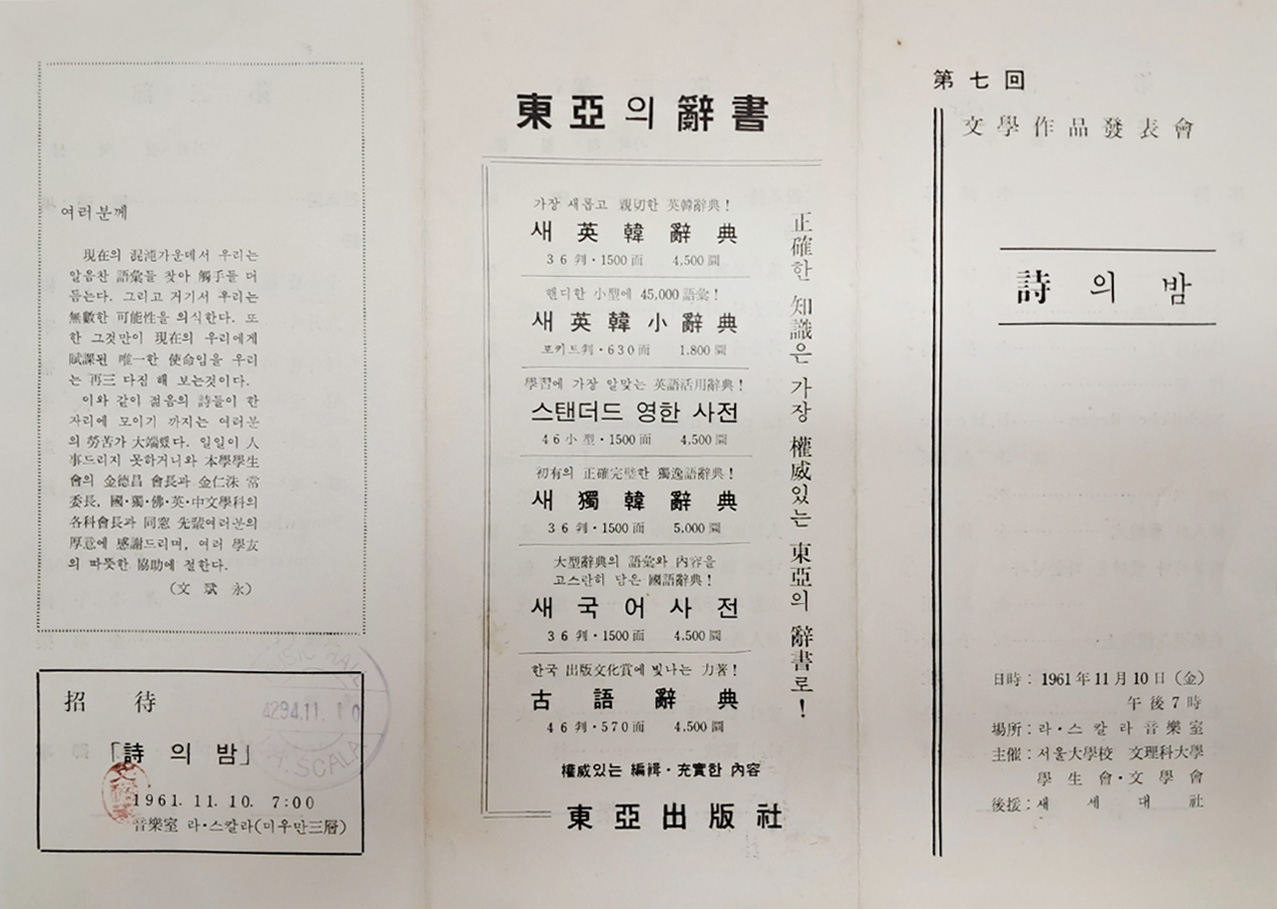 여러분께
現在의 混沌가운데서 우리는
알음찬 語彙들 찾아 觸手를 더
듬는다. 그리고 거기서 우리는
無數한 可能性을 의식한다. 또
한 그것만이 現在의 우리에게
賦課된 唯一한 使命임을 우리
는 再三 다짐 해 보는것이다.
이와 같이 젊음의 詩들이 한
자리에 모이기 까지는 여러분
의 勞苦가 大端했다. 일일이 人
事드리지 못하거니와 本學學生
會의 金德昌 會長과 金仁洙 常
委長, 國·獨·佛·英·中文學科의
各科會長과 同窓 先輩여러분의
厚意에 感謝드리며, 여러 學友
의 따뜻한 協助에 절한다.
(文 斌 永)
招 待
「詩 의 밤」
1961. 11. 10. 7:00
音樂室 라·스칼라(미우만三層)
4294.11. 10
SCALA
東亞의 辭書
가장 새롭고 親切한 英韓辭典!
새 英 韓 辭 典
36判·1500面 4,500圜
핸디한 小型에 45,000語彙!
새 英 韓 小 辭 典
포키트判·630面 1,800圜
學習에 가장 알맞는 英語活用辭典!
스탠더드 영한 사전
46小型·1500面 4,500圜
初有의 正確完璧한 獨逸語辭典!
새 獨 韓 辭 典
36判·1500面 5,000圜
大型辭典의 語彙와 內容을
고스란히 담은 國語辭典!
새 국 어 사 전
36判·1500面 4,500圜
한국 出版文化賞에 빛나는 力著!
古 語 辭 典
46判·570面 4,500圜
正確한 知識은 가장 權威있는 東亞의 辭書로!
權威있는 編緝·充實한 內容
東亞出版社
第七回
文學作品發表會
詩 의 밤
日時: 1961年 11月 10日 (金)
午後 7時
場所: 라·스칼라音樂室
主催: 서울大學校 文理科大學
學生會·文學會
後援: 새 세 대 社